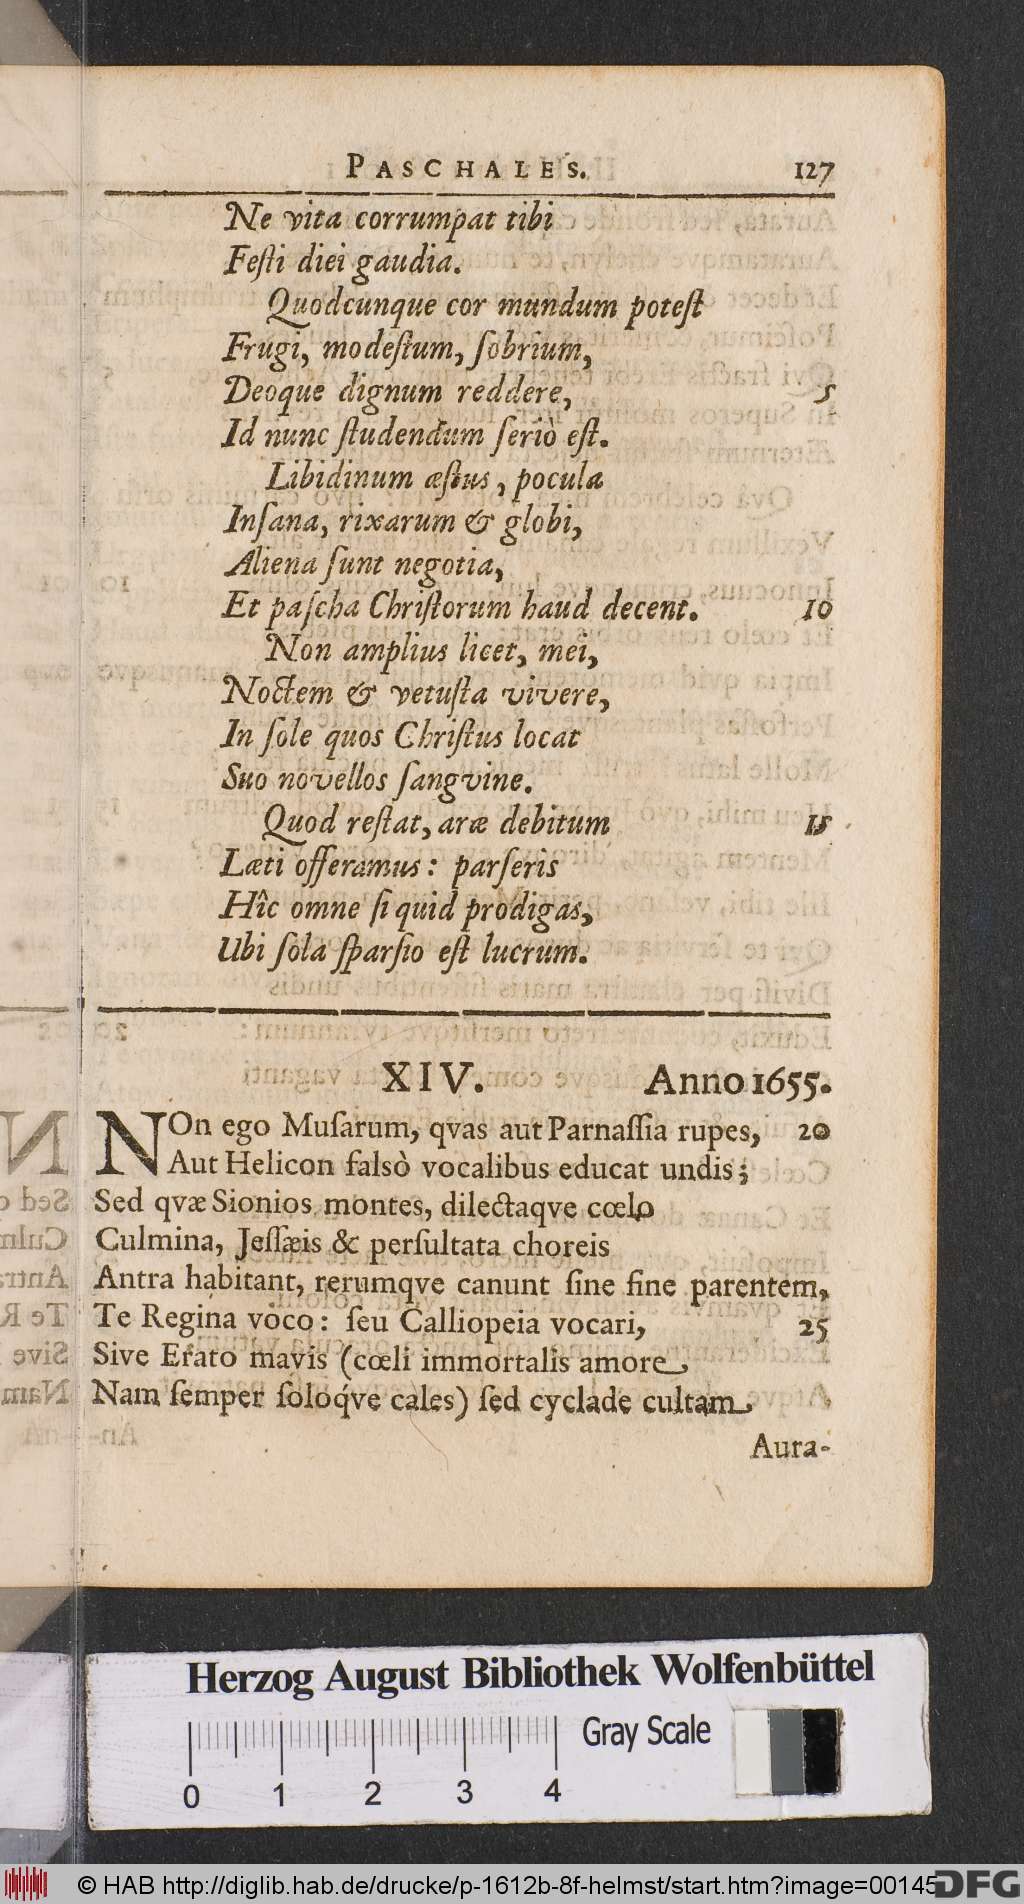 PASCHALES. 127
Ne vita corrumpat tibi
Feſti diei gaudia.
Quodcunque cor mundum poteſt
Frugi, modeſtum, ſobrium,
Deoque dignum reddere, 5
Id nunc ſtudendum ſeriò eſt.
Libidinum æſtus, pocula
Inſana, rixarum & globi,
Aliena ſunt negotia,
Et paſcha Chriſtorum haud decent. 10
Non amplius licet, mei,
Noctem & vetuſta vivere,
In ſole quos Chriſtus locat
Suo novellos ſangvine.
Quod reſtat, aræ debitum 15
Læti offeramus: parſeris
Hîc omne ſi quid prodigas,
Ubi ſola ſparſio eſt lucrum.
XIV. Anno 1655.
NOn ego Muſarum, qvas aut Parnaſſia rupes, 20
Aut Helicon falsò vocalibus educat undis;
Sed qvæ Sionios montes, dilectaqve cœlo
Culmina, Jeſſæis & perſultata choreis
Antra habitant, rerumqve canunt ſine fine parentem,
Te Regina voco: ſeu Calliopeia vocari, 25
Sive Erato mavis (cœli immortalis amore
Nam ſemper ſoloq́ve cales) ſed cyclade cultam
Aura-
Herzog August Bibliothek Wolfenbüttel
Gray Scale
0 1 2 3 4
© HAB http://diglib.hab.de/drucke/p-1612b-8f-helmst/start.htm?image=00145
DFG